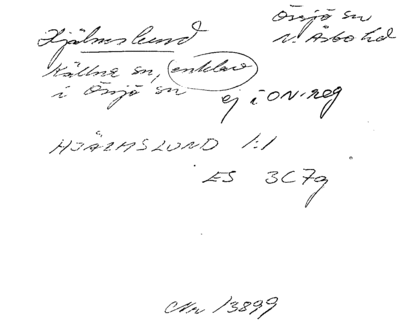 Hjälmslund
Össjö sn
N. Åsbo hd
Källna sn, enklav
i Össjö sn
ej i ON-reg
HJÄLMSLUND 1:1
ES 3C7g
Nr 13899